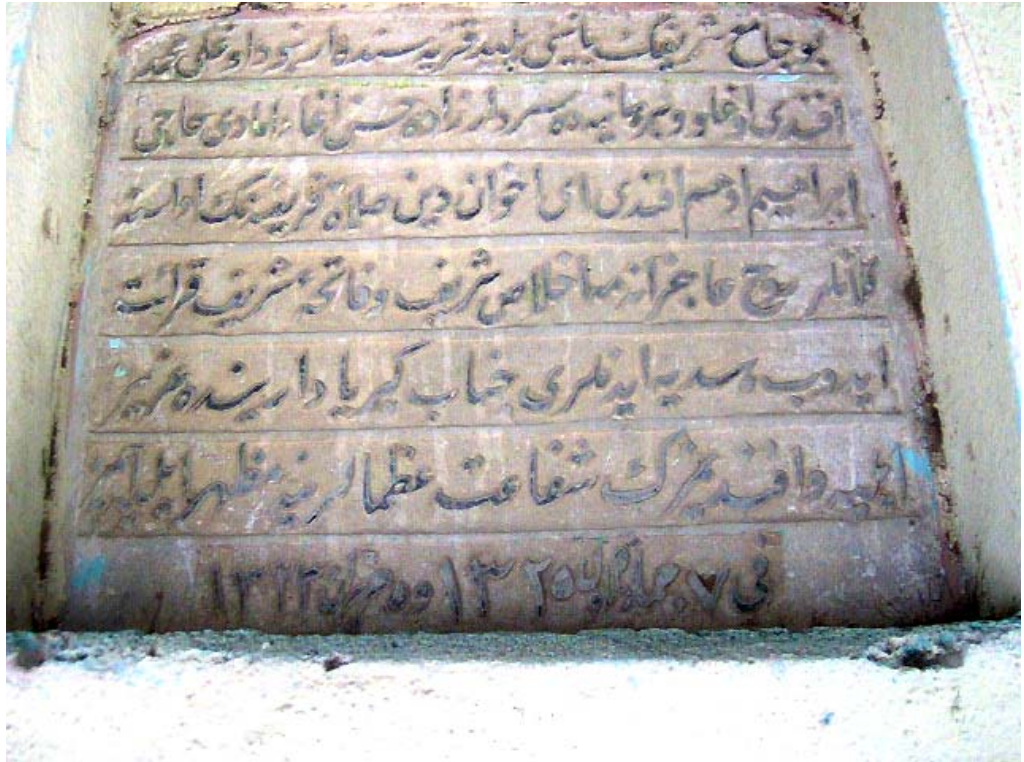 بو جامع شريفك بانيسى بليد قريه سندن كار بنو داو على محمد
افندى اوغلو و بر جانبده سردار زاده حسن اغا دامادى حاجى
ابراهيم ادهم افندى اى اخوان دين صلاة فريضه نك اداسنه
روح عاجزانه مه اخلاص شريف و فاتحهٴ شريف قرائت
ايدوب هديه ايدنلرى جناب كبريا دارينده عزيز
ايليه و افنديمزك شفاعت عظمالرينه مظهر ايليه آمين
فى ٧ ١٣٢٥ و ١٣٢٣